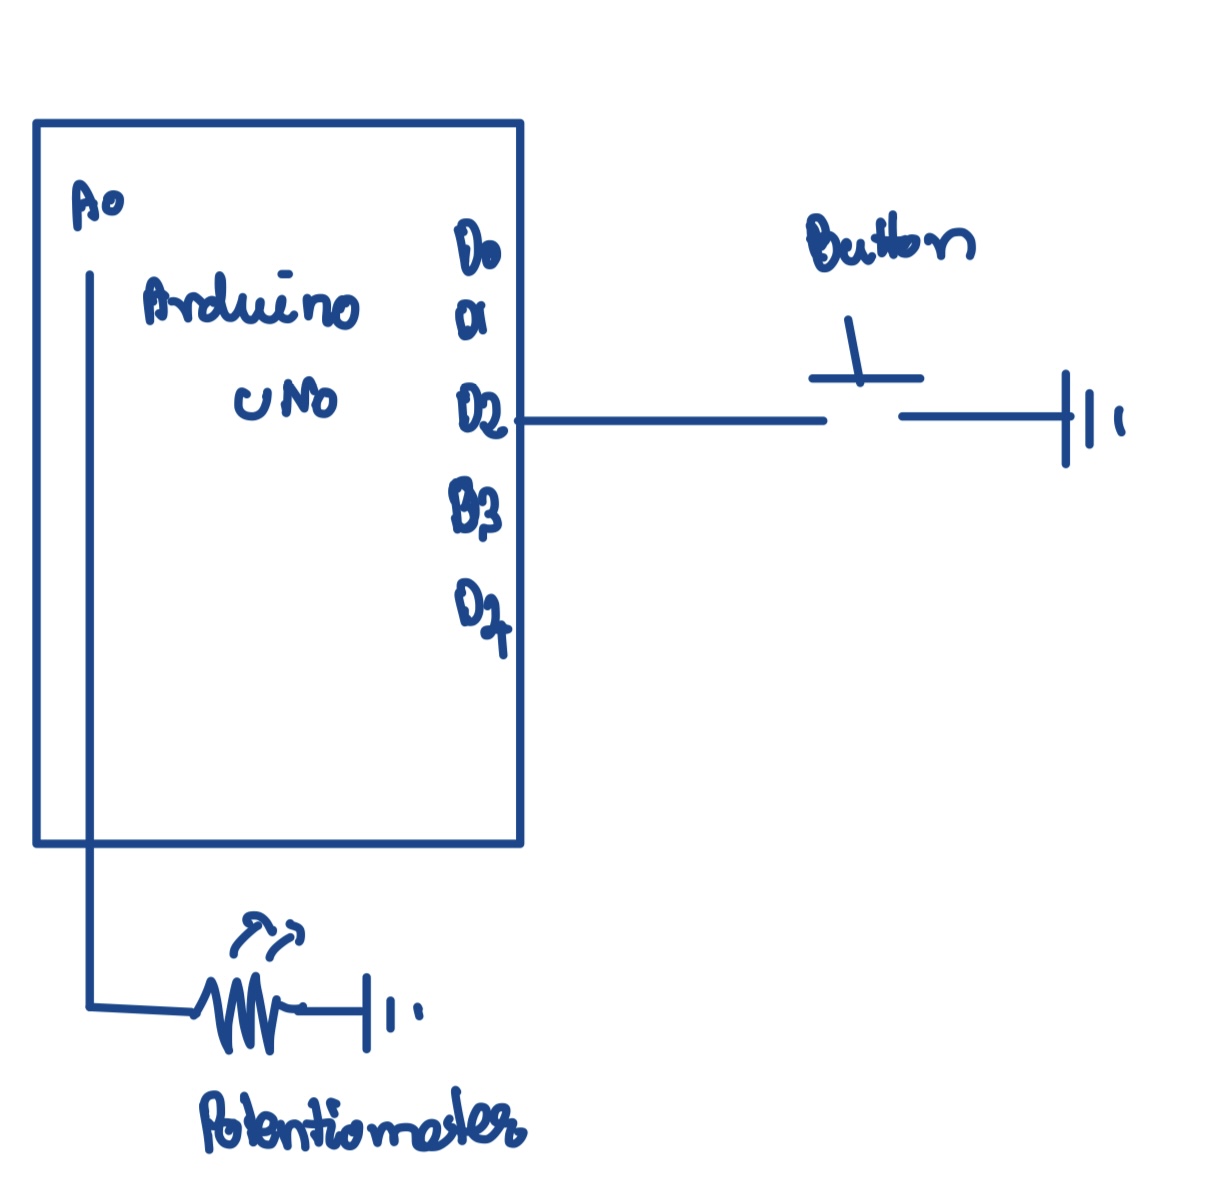 A0
Arduino
UNO
D0
D1
D2
D3
D4
Button
Potentiometer